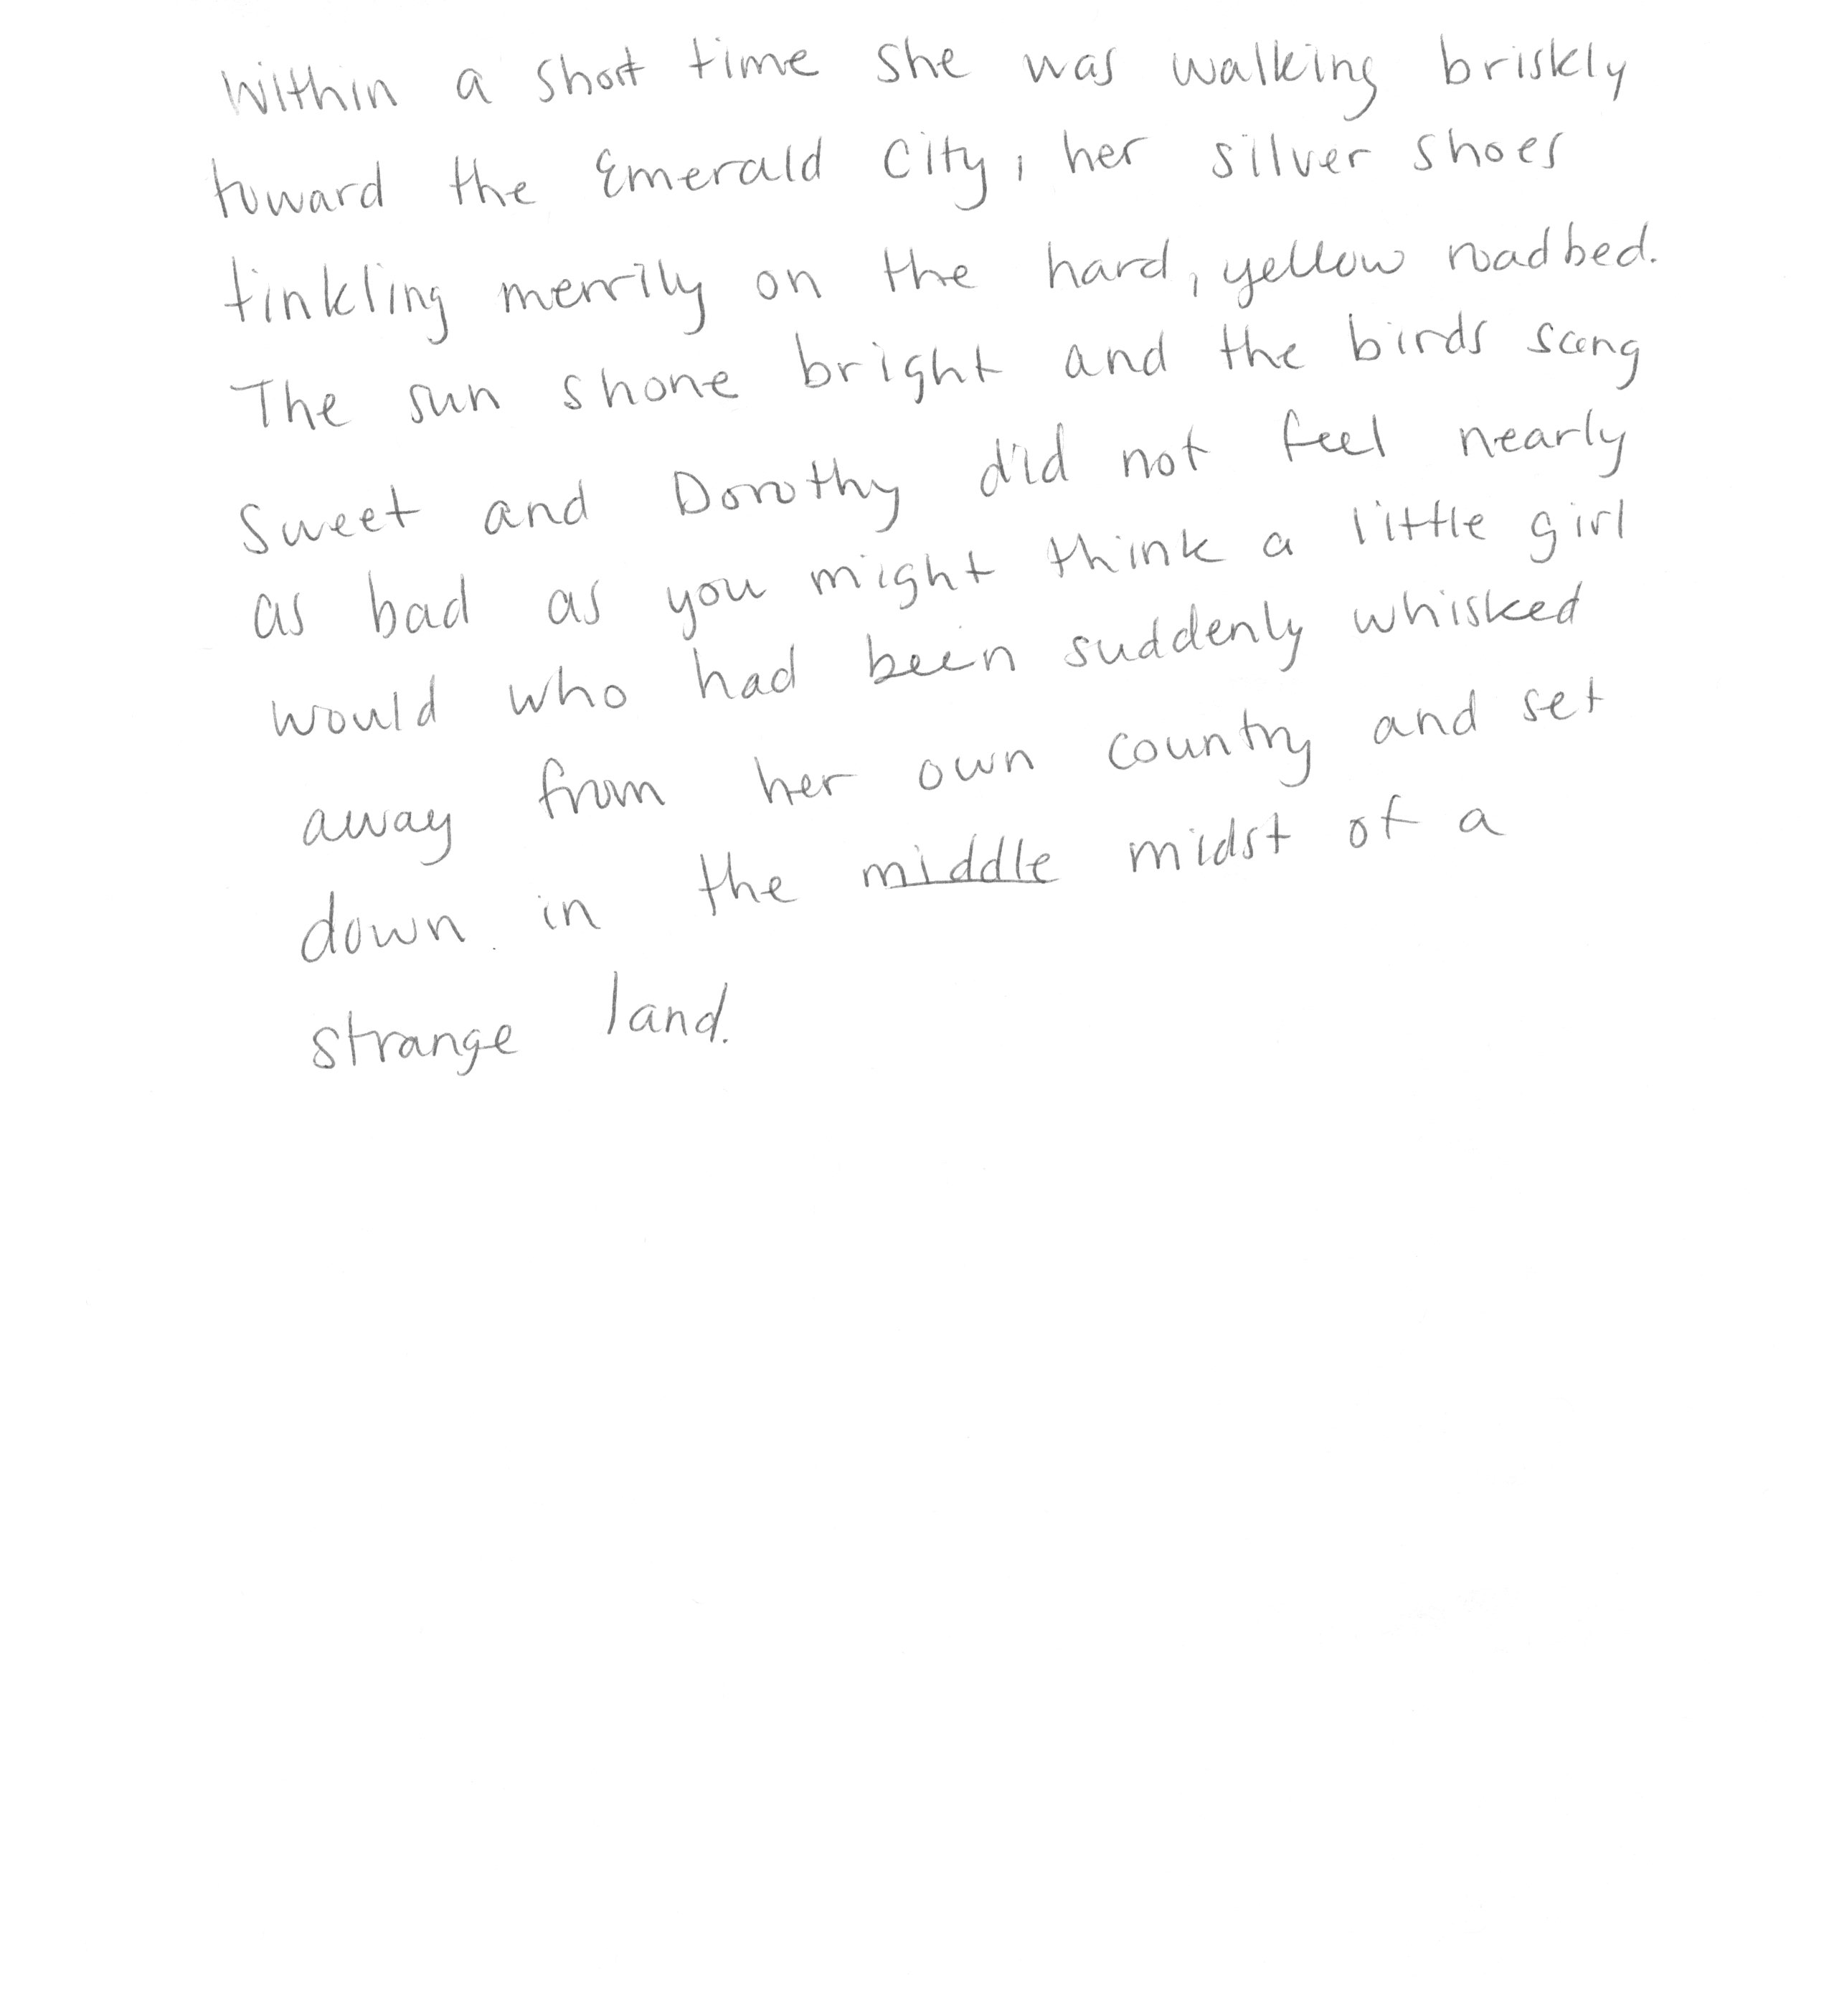 Within a short time she was walking briskly
toward the Emerald City, her silver shoes
tinkling merrily on the hard, yellow roadbed.
The sun shone bright and the birds sang
sweet and Dorothy did not feel nearly
as bad as you might think a little girl
would who had been suddenly whisked
away from her own country and set
down in the middle midst of a
strange land.